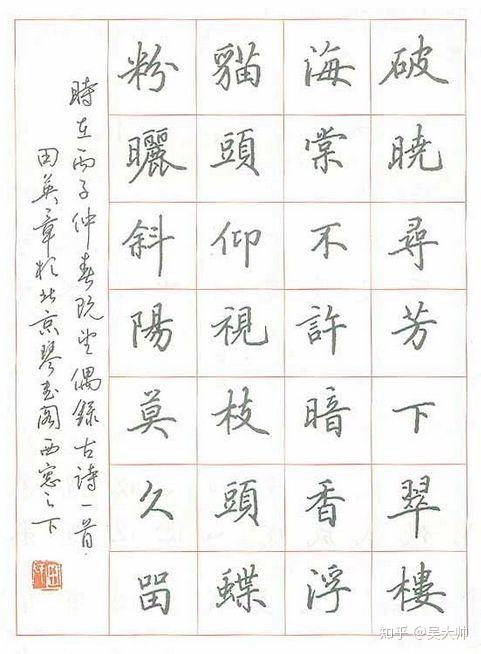 破曉尋芳下翠樓
海棠不許暗香浮
貓頭仰視枝頭蝶
粉曬斜陽莫久留
時在丙子仲春既望偶錄古詩一首
田英章於北京琴書閣西窓之下
知乎 @吴大帅